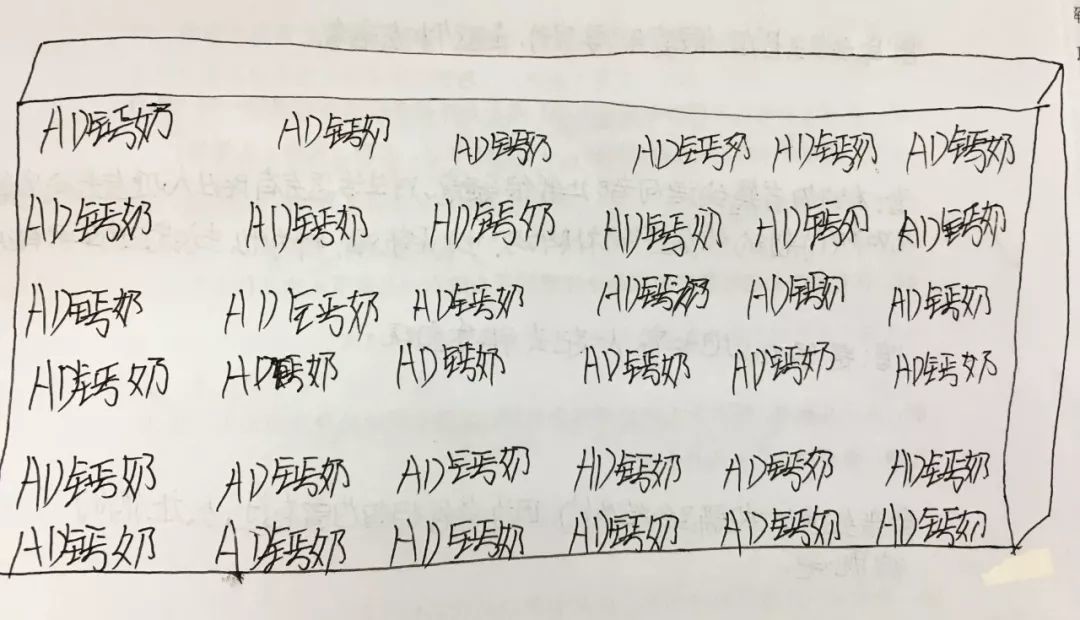 AD钙奶 AD钙奶 AD钙奶 AD钙奶 AD钙奶 AD钙奶
AD钙奶 AD钙奶 AD钙奶 AD钙奶 AD钙奶 AD钙奶
AD钙奶 AD钙奶 AD钙奶 AD钙奶 AD钙奶 AD钙奶
AD钙奶 AD钙奶 AD钙奶 AD钙奶 AD钙奶 AD钙奶
AD钙奶 AD钙奶 AD钙奶 AD钙奶 AD钙奶 AD钙奶
AD钙奶 AD钙奶 AD钙奶 AD钙奶 AD钙奶 AD钙奶